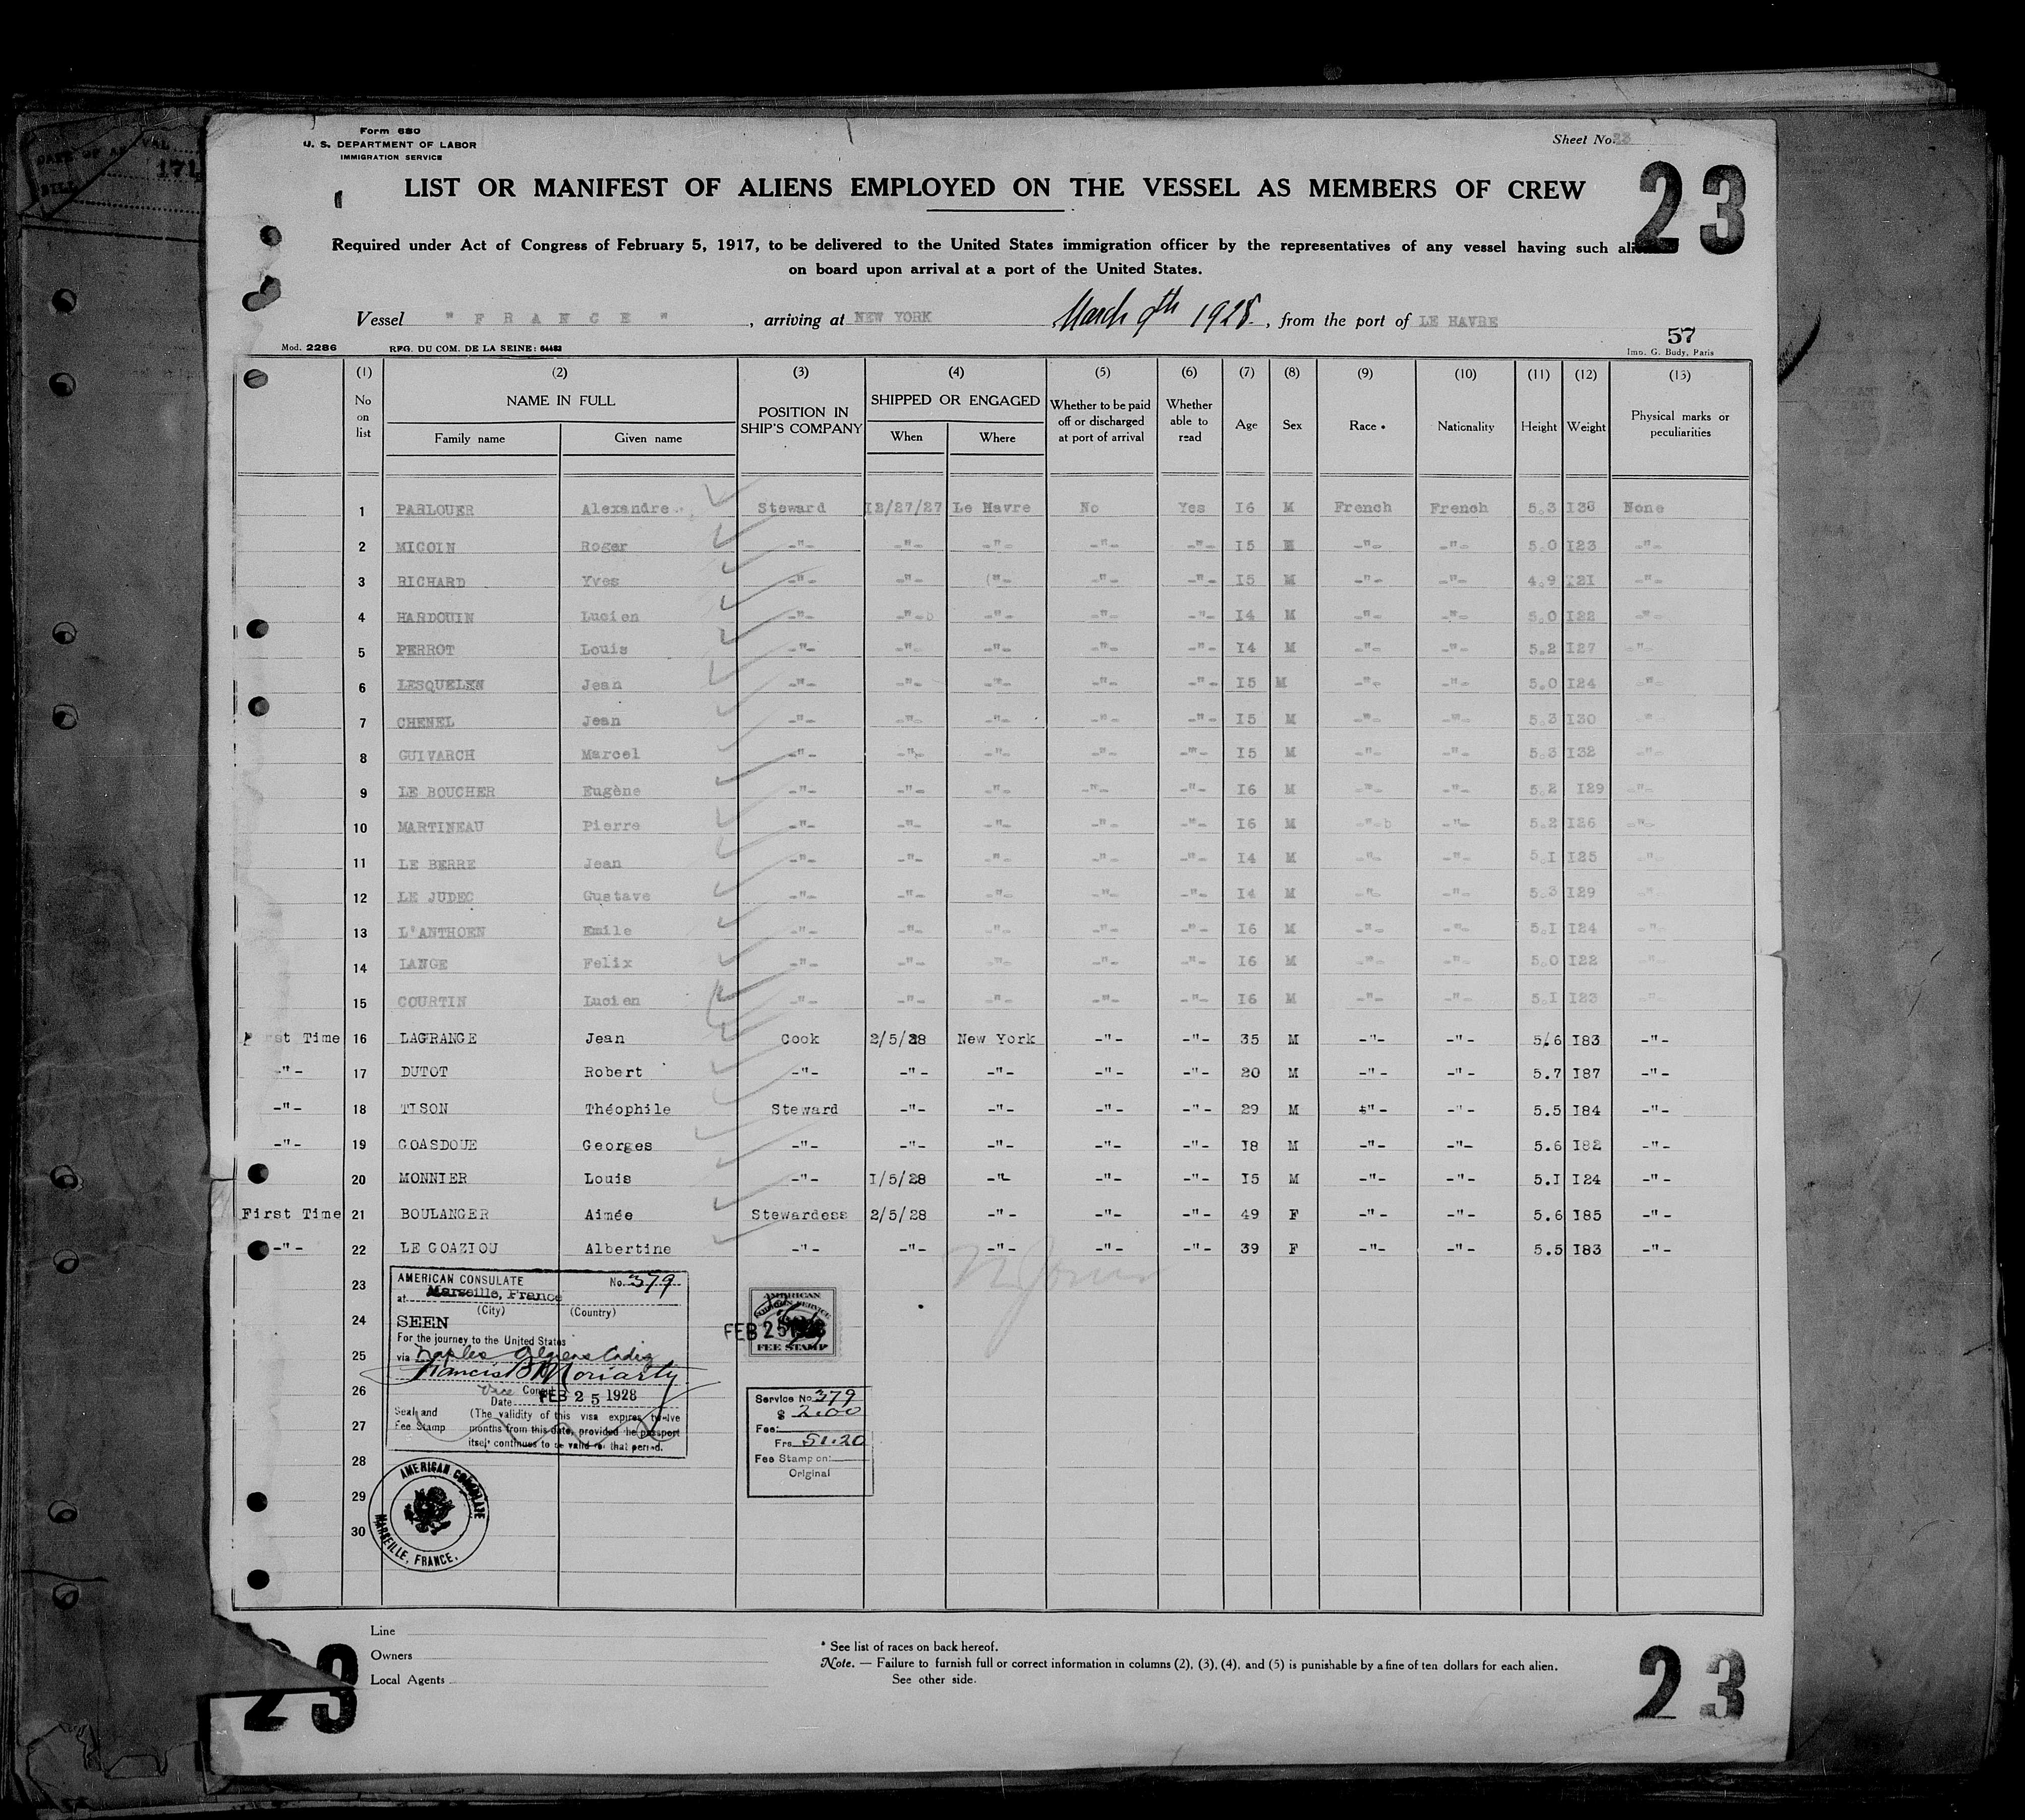 Form 680
U. S. DEPARTMENT OF LABOR
IMMIGRATION SERVICE
Sheet No. 23
23
LIST OR MANIFEST OF ALIENS EMPLOYED ON THE VESSEL AS MEMBERS OF CREW
Required under Act of Congress of February 5, 1917, to be delivered to the United States immigration officer by the representatives of any vessel having such
on board upon arrival at a port of the United States.
Vessel " F R A N C E " , arriving at NEW YORK March 9th 1928, from the port of LE HAVRE
57
Mod. 2286 REG. DU COM. DE LA SEINE: 64483 Imp. G. Budy, Paris
(1) (2) (3) (4) (5) (6) (7) (8) (9) (10) (11) (12) (13)
No on list NAME IN FULL Family name Given name POSITION IN SHIP'S COMPANY SHIPPED OR ENGAGED When Where Whether to be paid off or discharged at port of arrival Whether able to read Age Sex Race * Nationality Height Weight Physical marks or peculiarities
1 PARLOUER Alexandre Steward I2/27/27 Le Havre No Yes I6 M French French 5.3 I36 None
2 MICOIN Roger -"- -"- -"- -"- -"- I5 M -"- -"- 5.0 I23 -"-
3 RICHARD Yves -"- -"- ("- -"- -"- I5 M -"- -"- 4.9 I21 -"-
4 HARDOUIN Lucien -"- -"-b -"- -"- -"- I4 M -"- -"- 5.0 I22 -"-
5 PERROT Louis -"- -"- -"- -"- -"- I4 M -"- -"- 5.2 I27 -"-
6 LESQUELEN Jean -"- -"- -"- -"- -"- I5 M -"- -"- 5.0 I24 -"-
7 CHENEL Jean -"- -"- -"- -"- -"- I5 M -"- -"- 5.3 I30 -"-
8 GUIVARCH Marcel -"- -"- -"- -"- -"- I5 M -"- -"- 5.3 I32 -"-
9 LE BOUCHER Eugène -"- -"- -"- -"- -"- I6 M -"- -"- 5.2 I29 -"-
10 MARTINEAU Pierre -"- -"- -"- -"- -"- I6 M -"-b -"- 5.2 I26 -"-
11 LE BERRE Jean -"- -"- -"- -"- -"- I4 M -"- -"- 5.I I25 -"-
12 LE JUDEC Gustave -"- -"- -"- -"- -"- I4 M -"- -"- 5.3 I29 -"-
13 L'ANTHOEN Emile -"- -"- -"- -"- -"- I6 M -"- -"- 5.I I24 -"-
14 LANGE Felix -"- -"- -"- -"- -"- I6 M -"- -"- 5.0 I22 -"-
15 COURTIN Lucien -"- -"- -"- -"- -"- I6 M -"- -"- 5.I I23 -"-
First Time 16 LAGRANGE Jean Cook 2/5/28 New York -"- -"- 35 M -"- -"- 5.6 I83 -"-
-"- 17 DUTOT Robert -"- -"- -"- -"- -"- 20 M -"- -"- 5.7 I87 -"-
-"- 18 TISON Théophile Steward -"- -"- -"- -"- 29 M -"- -"- 5.5 I84 -"-
-"- 19 GOASDOUE Georges -"- -"- -"- -"- -"- I8 M -"- -"- 5.6 I82 -"-
20 MONNIER Louis -"- I/5/28 -"- -"- -"- I5 M -"- -"- 5.I I24 -"-
First Time 21 BOULANGER Aimée Stewardess 2/5/28 -"- -"- -"- 49 F -"- -"- 5.6 I85 -"-
-"- 22 LE GOAZIOU Albertine -"- -"- -"- -"- -"- 39 F -"- -"- 5.5 I83 -"-
23
24
25
26
27
28
29
30
AMERICAN CONSULATE No. 379
at Marseille, France
(City) (Country)
SEEN
For the journey to the United States
via Naples Algiers Cadiz
Francis B Moriarty
Vice Consul
Date FEB 25 1928
Seal and Fee Stamp
(The validity of this visa expires twelve
months from this date, provided the passport
itself continues to be valid for that period.
AMERICAN CONSULATE
MARSEILLE, FRANCE.
AMERICAN
FOREIGN SERVICE
FEB 25 1928
FEE STAMP
Service No. 379
$ 2.00
Fee:
Frs 51.20
Fee Stamp on:
Original
Line
Owners
Local Agents
* See list of races on back hereof.
Note. — Failure to furnish full or correct information in columns (2), (3), (4), and (5) is punishable by a fine of ten dollars for each alien.
See other side.
23
23